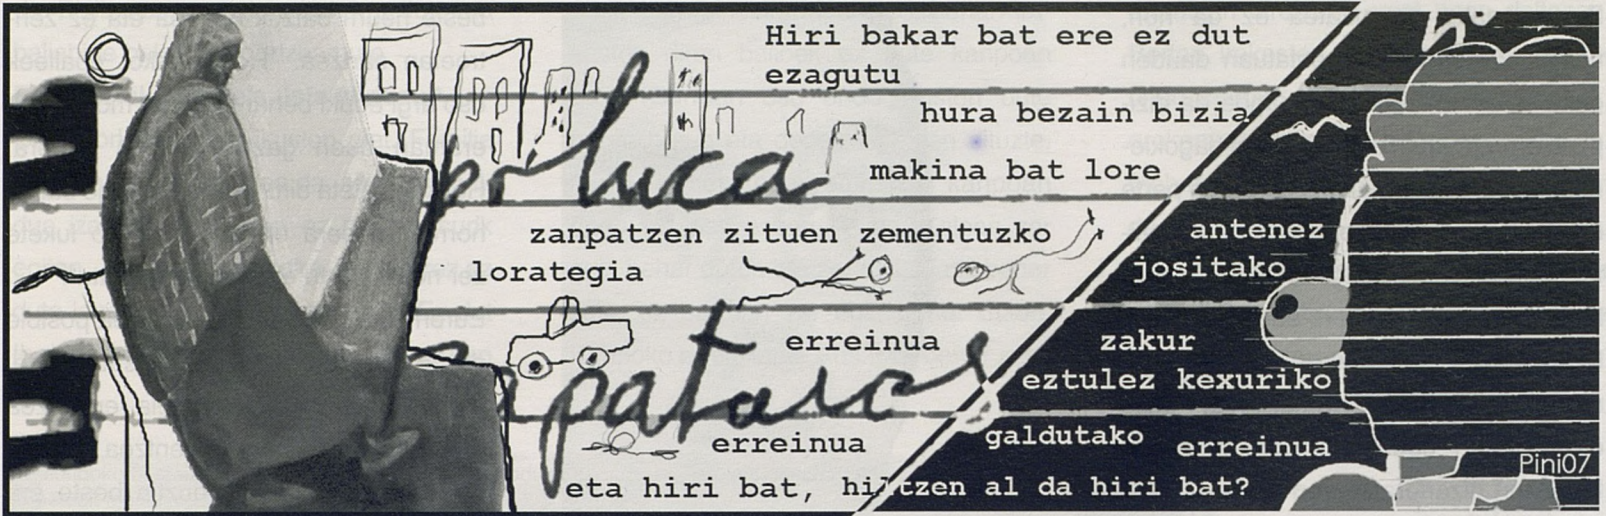 Hiri bakar bat ere ez dut
ezagutu
hura bezain bizia
makina bat lore
zanpatzen zituen zementuzko
lorategia
antenez
jositako
erreinua
zakur
eztulez kexuriko
erreinua
galdutako erreinua
eta hiri bat, hiltzen al da hiri bat?
Pini07